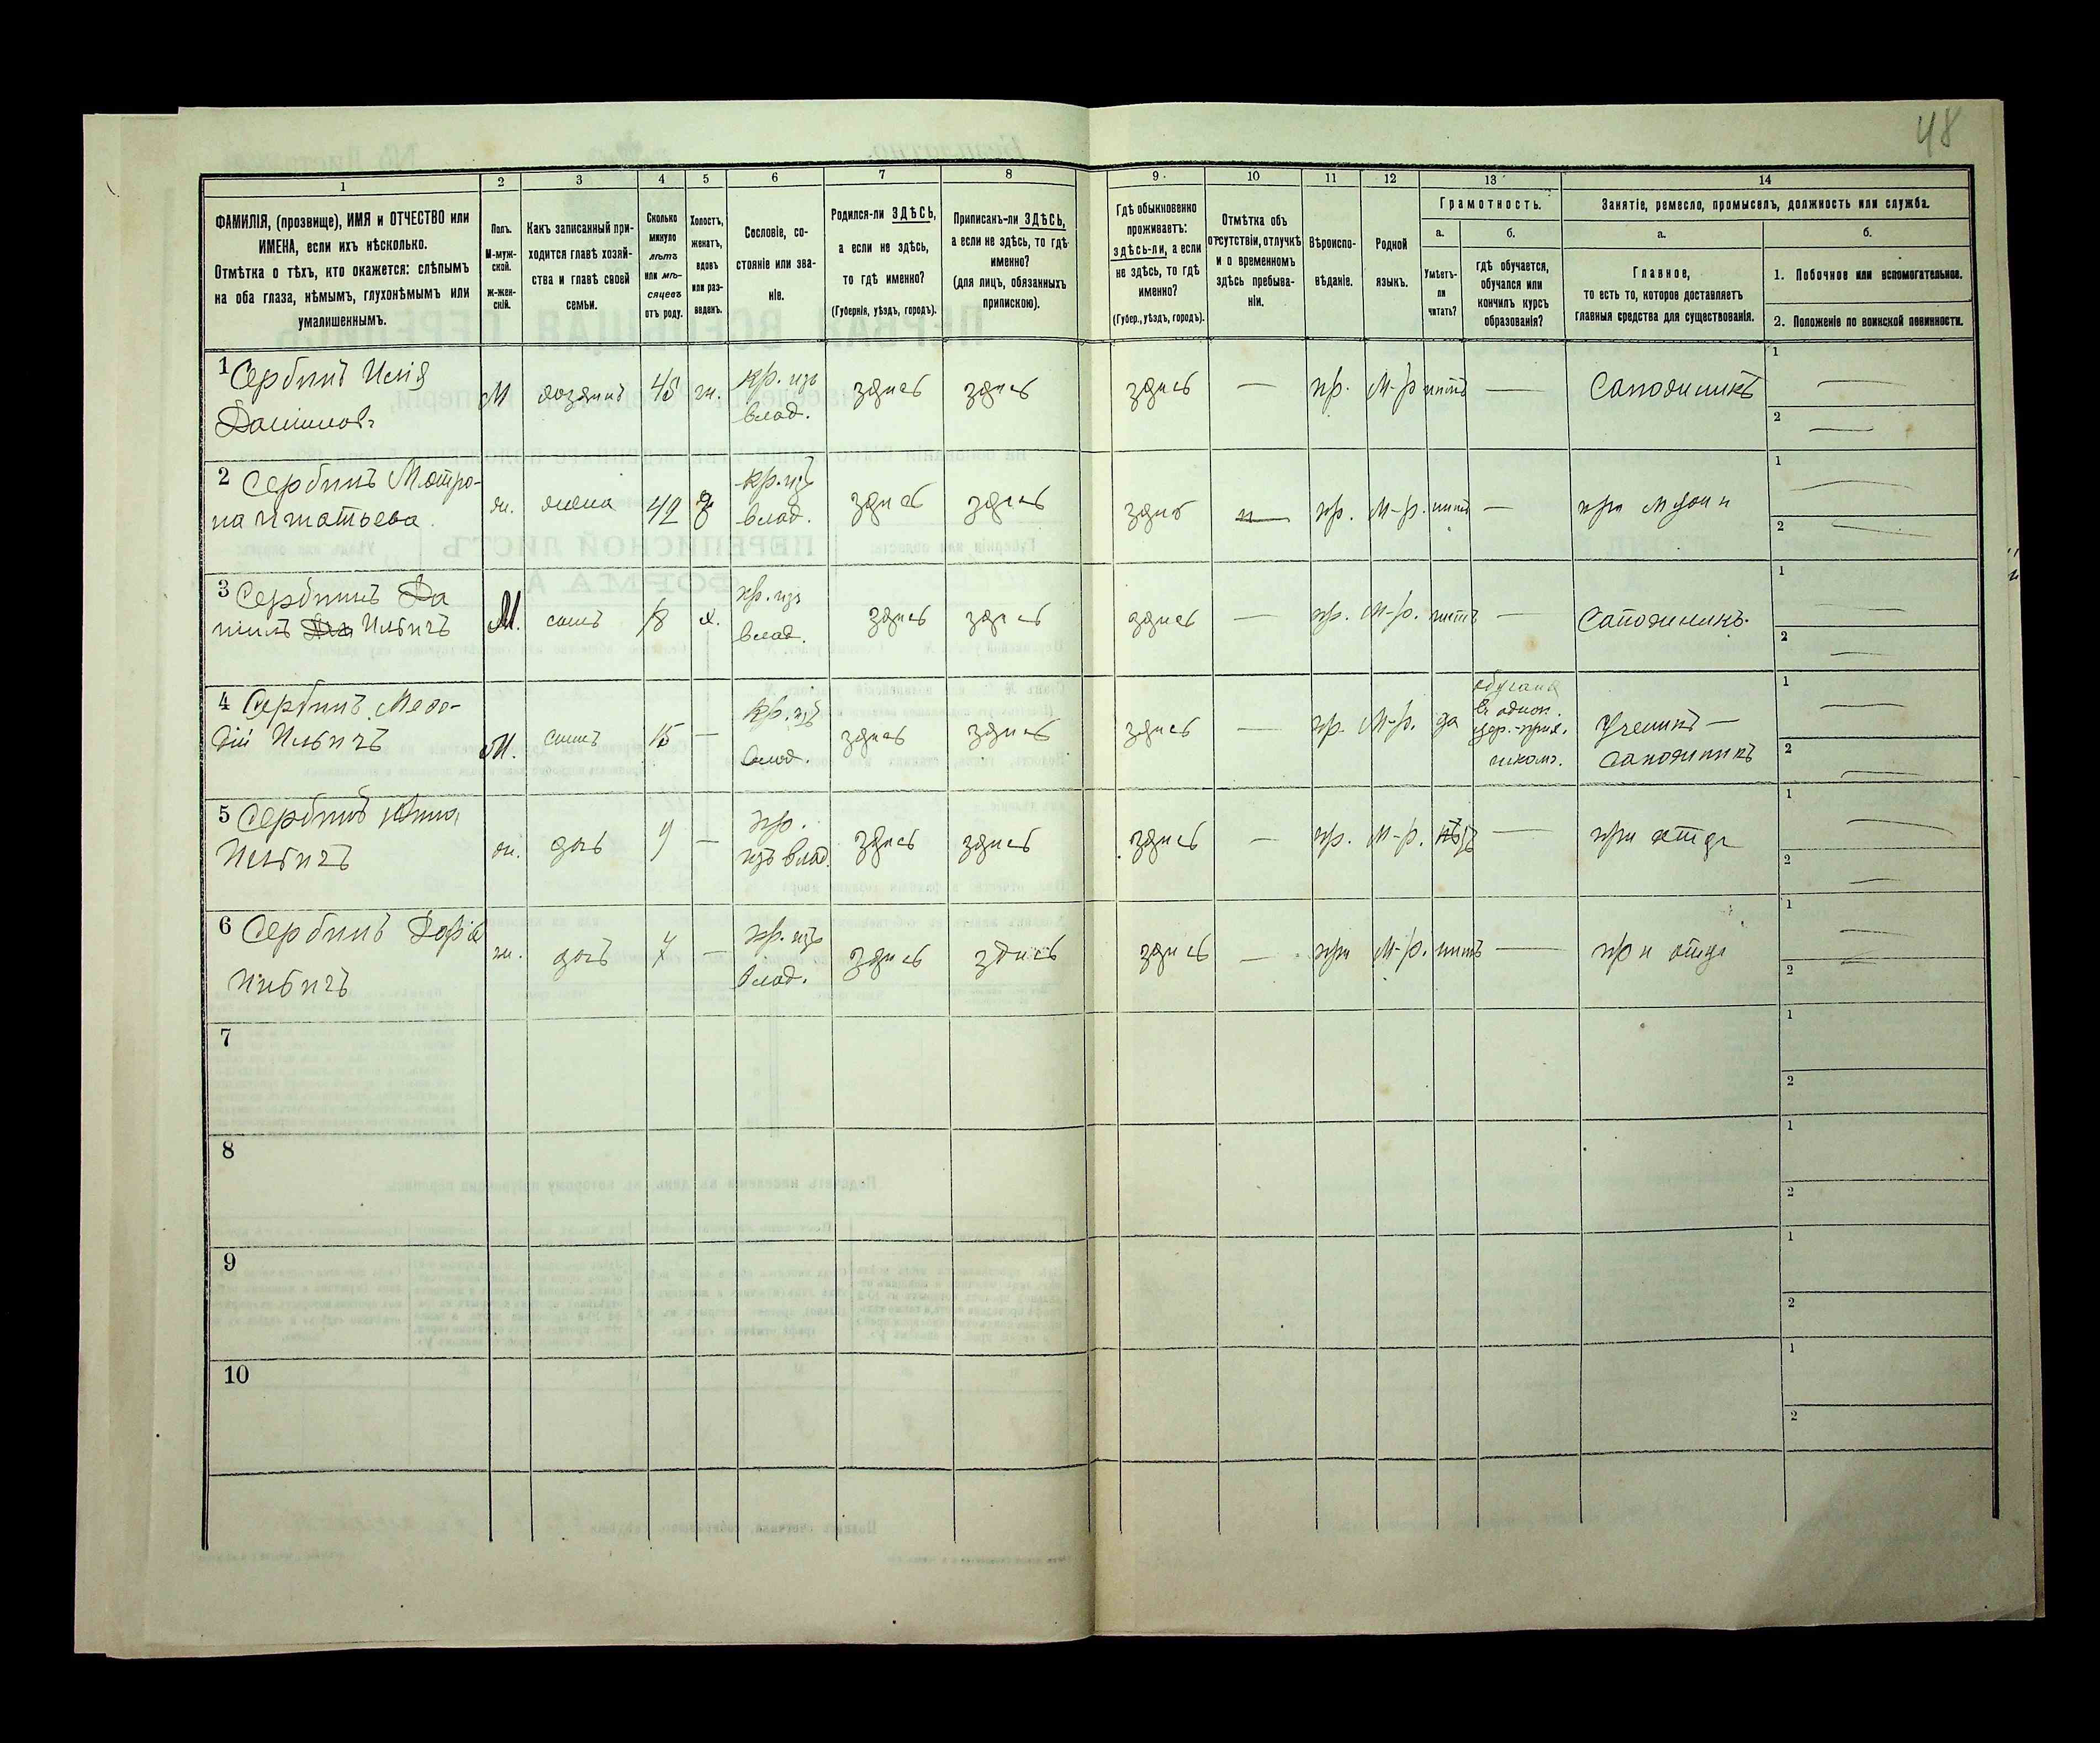 48
1
2
3
4
5
6
7
8
9
10
11
12
13
14
ФАМИЛІЯ, (прозвище), ИМЯ и ОТЧЕСТВО или
ИМЕНА, если ихъ нѣсколько.
Отмѣтка о тѣхъ, кто окажется: слѣпымъ
на оба глаза, нѣмымъ, глухонѣмымъ или
умалишеннымъ.
Полъ.
М-муж-
ской.
Ж-жен-
скій.
Какъ записанный при-
ходится главѣ хозяй-
ства и главѣ своей
семьи.
Сколько
минуло
лѣтъ
или мѣ-
сяцевъ
отъ роду.
Холостъ,
женатъ,
вдовъ
или раз-
веденъ.
Сословіе, со-
стояніе или зва-
ніе.
Родился-ли ЗДѢСЬ,
а если не здѣсь,
то гдѣ именно?
(Губернія, уѣздъ, городъ).
Приписанъ-ли ЗДѢСЬ,
а если не здѣсь, то гдѣ
именно?
(для лицъ, обязанныхъ
припискою).
Гдѣ обыкновенно
проживаетъ:
здѣсь-ли, а если
не здѣсь, то гдѣ
именно?
(Губер., уѣздъ, городъ).
Отмѣтка объ
отсутствіи, отлучкѣ
и о временномъ
здѣсь пребыва-
ніи.
Вѣроиспо-
вѣданіе.
Родной
языкъ.
Грамотность.
а.
Умѣетъ-
ли
читать?
б.
гдѣ обучается,
обучался или
кончилъ курсъ
образованія?
Занятіе, ремесло, промыселъ, должность или служба.
а.
Главное,
то есть то, которое доставляетъ
главныя средства для существованія.
б.
1. Побочное или вспомогательное.
2. Положеніе по воинской повинности.
1 Сербинъ Илія
Даниловъ
М хозяинъ 45 ж. кр. изъ
влад.
здись здись здись — пр. М-р нитъ — Сапожникъ
1 —
2 —
2 Сербинъ Мотро-
на Игнатьева.
ж. жена 42 з кр. изъ
влад.
здись здись здись — пр. М-р. нитъ — при мужи
1 —
2 —
3 Сербинъ Да
нилъ Ильичъ
М. сынъ 18 х. кр. изъ
влад.
здись здись здись — пр. М-р. нитъ — Сапожникъ.
1 —
2 —
4 Сербинъ Мефо-
дій Ильичъ
М. сынъ 15 — кр. изъ
влад.
здись здись здись — пр. М-р. да
въ однок.
цер.-прих.
школ.
Ученикъ —
сапожникъ
1 —
2 —
5 Сербинъ
Ильичъ
ж. дочь 9 — кр.
изъ влад.
здись здись здись — пр. М-р. — при отце
1 —
2 —
6 Сербинъ
Ильичъ
ж. дочь 7 — кр. изъ
влад.
здись здись здись — пр М-р. нитъ — при отце
1 —
2 —
7
1
2
8
1
2
9
1
2
10
1
2